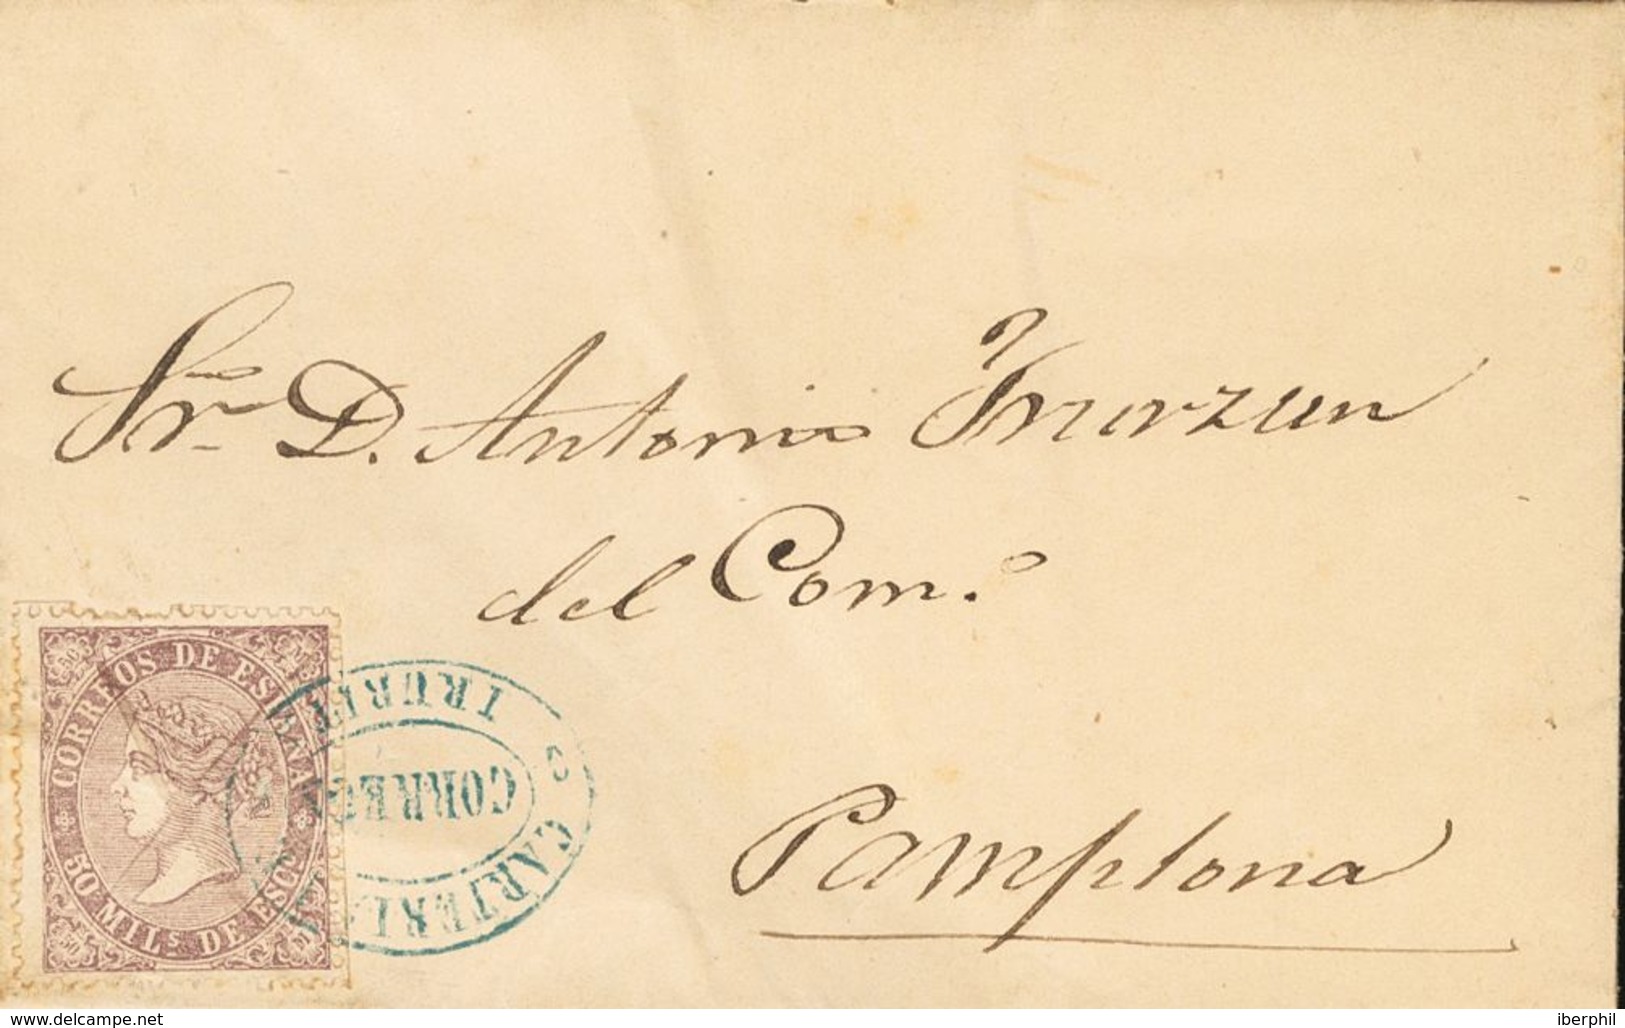 Sr. D. Antonio Irrarzun
del Com.º
Pamplona
CORREOS DE ESPAÑA
50 MILS DE ESCO
50
50
CARTERI
CORRE
IRURIT
www.delcampe.net
iberphil